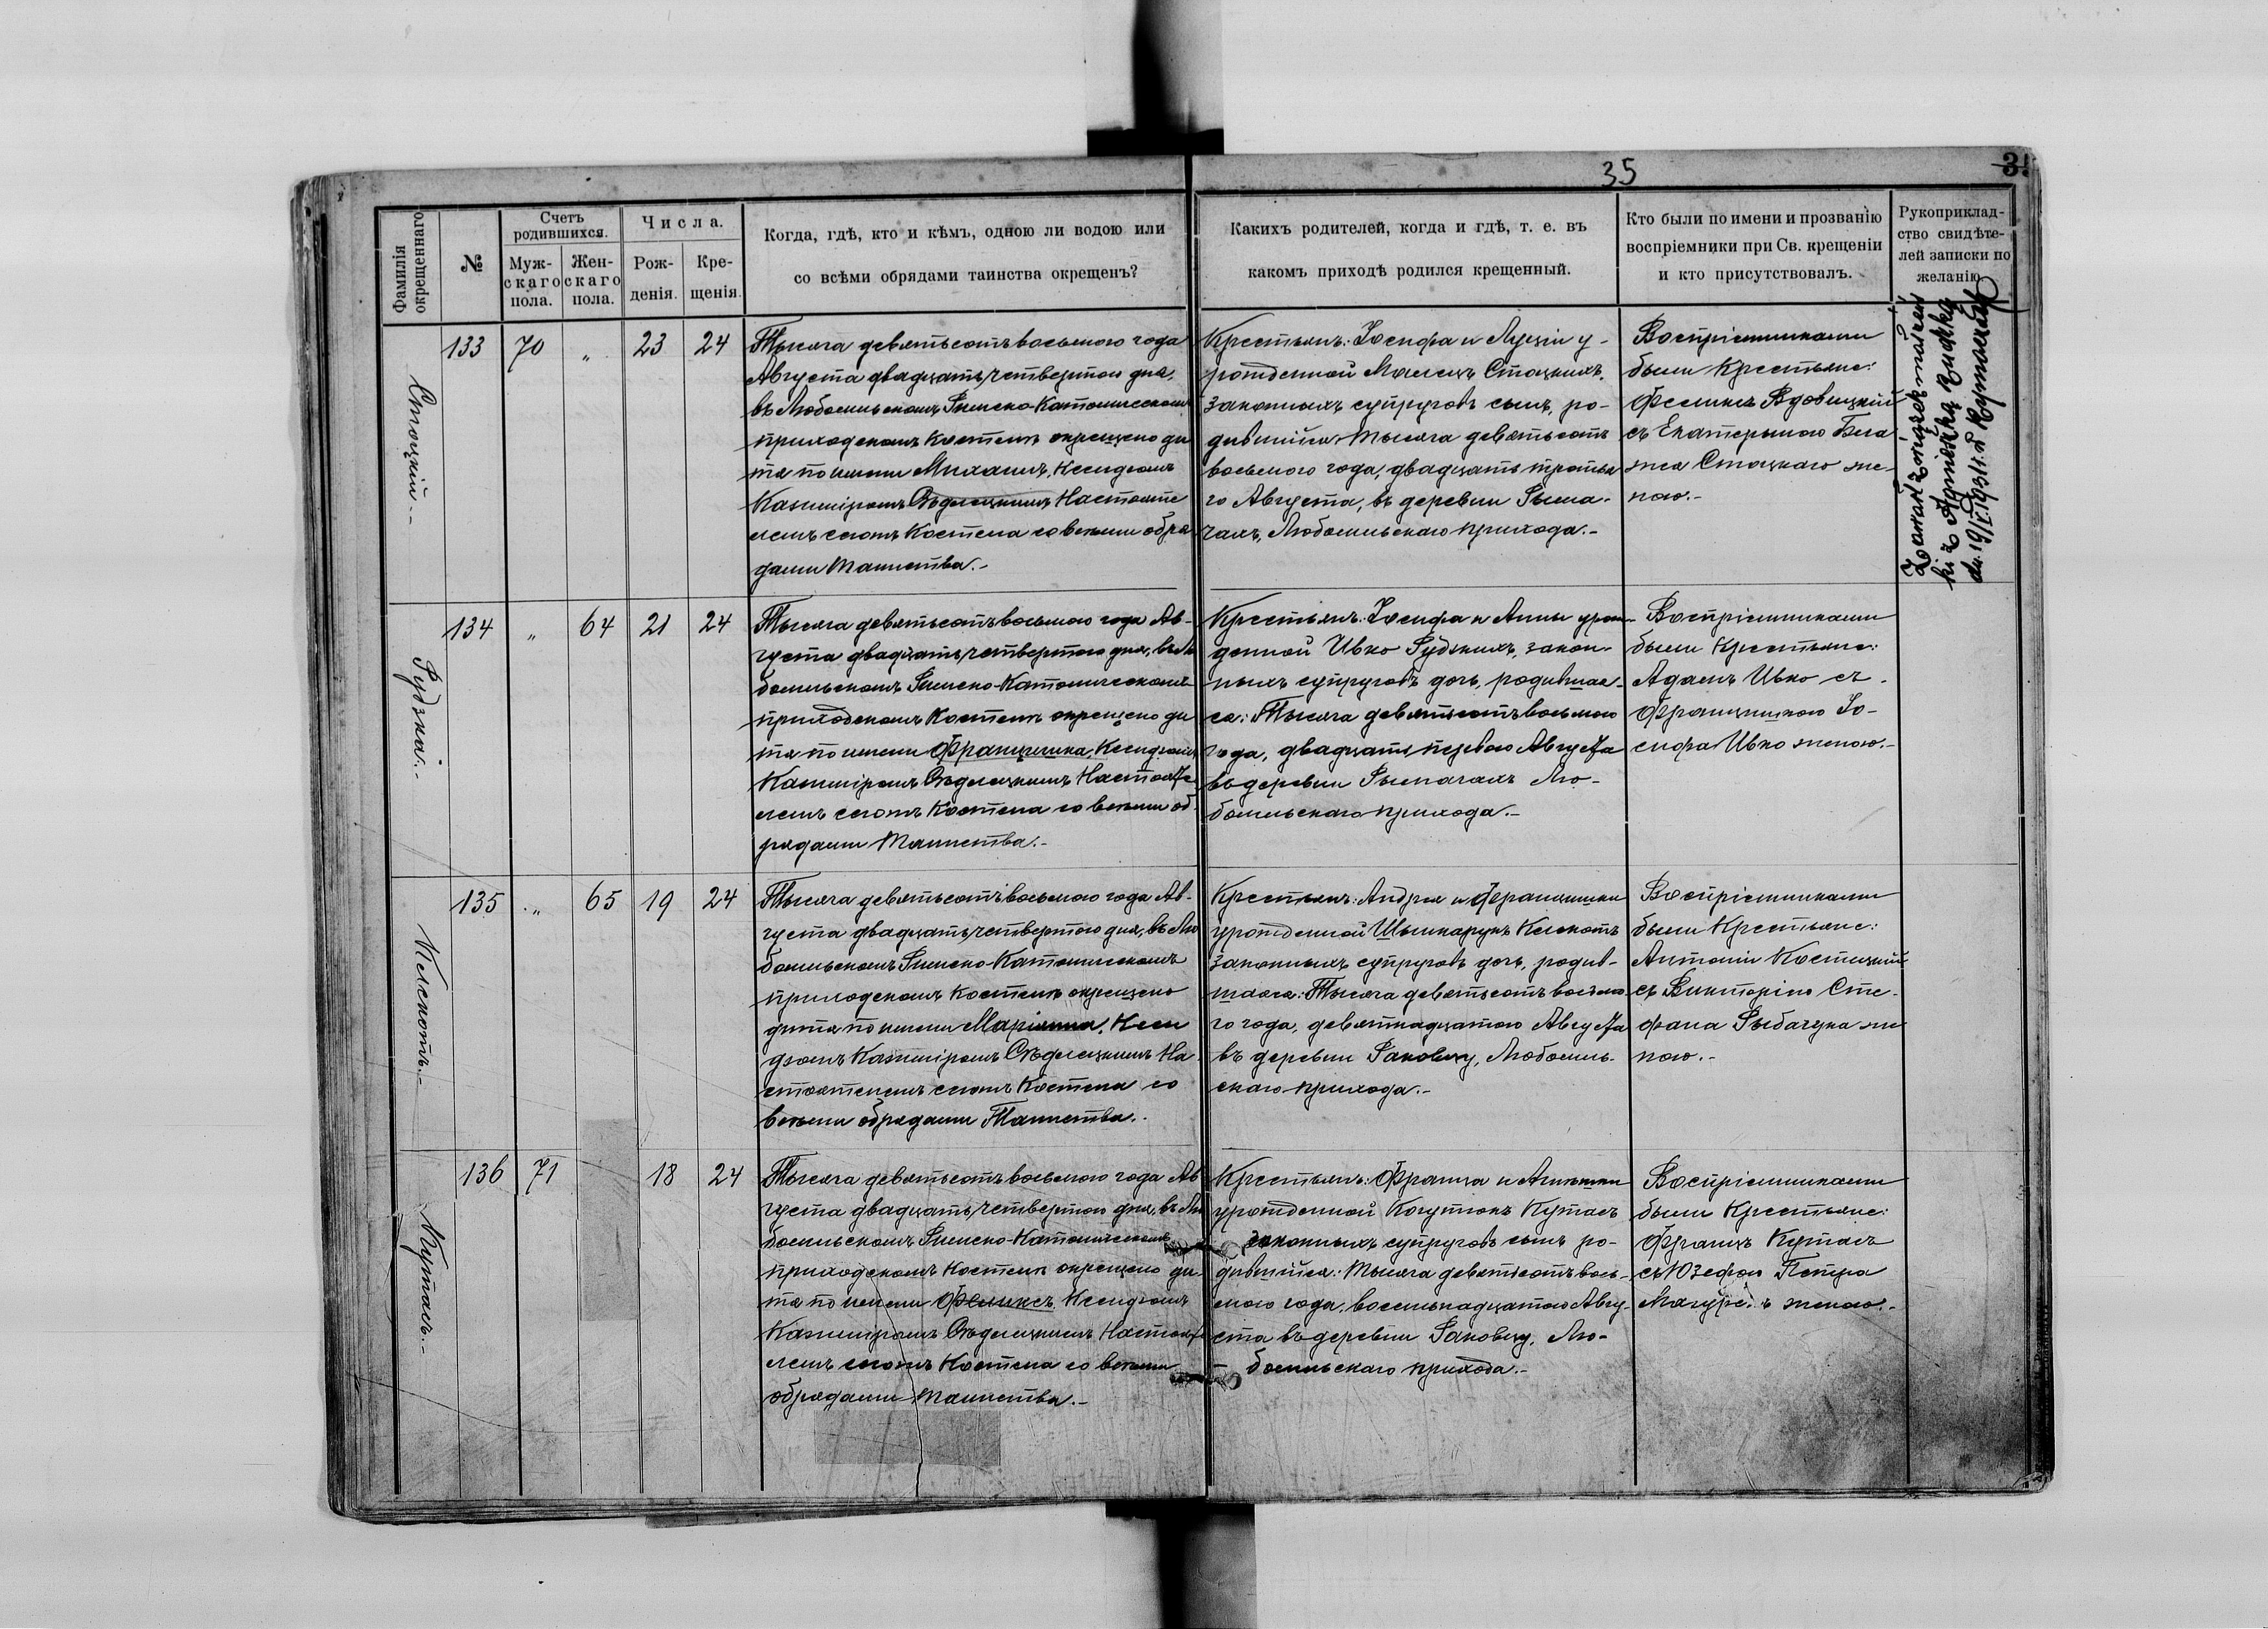 35
3
Фамилія
окрещеннаго
№
Счетъ
родившихся.
Муж-
скаго
пола.
Жен-
скаго
пола.
Числа.
Рож-
денія.
Кре-
щенія.
Когда, гдѣ, кто и кѣмъ, одною ли водою или
со всѣми обрядами таинства окрещенъ?
Какихъ родителей, когда и гдѣ, т. е. въ
какомъ приходѣ родился крещенный.
Кто были по имени и прозванію
воспріемники при Св. крещеніи
и кто присутствовалъ.
Рукоприклад-
ство свидѣте-
лей записки по
желанію
Стоцкій.-
133 70 „ 23 24
Тысяча девятьсотъ восьмого года
Августа двадцать четвертаго дня,
въ Любомльскомъ Римско-Католическомъ
приходскомъ Костелѣ окрещено ди
тя по имени Михаилъ, Ксендзомъ
Казиміромъ Сѣдлецкимъ Настояте
лемъ сего Костела со всѣми обря
дами Таинства.-
Крестьянъ: Іосифа и Луціи у-
рожденной Стоцкихъ,
законныхъ супруговъ сынъ, ро-
дившійся Тысяча девятьсотъ
восьмого года, двадцать третья
го Августа, въ деревни Рыма-
чахъ, Любомльскаго прихода.-
Воспріемниками
были Крестьяне:
Феликсъ Вдовицкій
съ Екатериною
Стоцкаго же-
ною.-
Рудзка.-
134 „ 64 21 24
Тысяча девятьсотъ восьмого года Ав-
густа двадцать четвертаго дня, въ Лю
бомльскомъ Римско-Католическомъ
приходскомъ Костелѣ окрещено ди
тя по имени Францишка, Ксендзомъ
Казиміромъ Сѣдлецкимъ Настояте
лемъ сего Костела со всѣми об
рядами Таинства.-
Крестьянъ: Іосифа и Анны урож-
денной Ивко Рудзкихъ, закон-
ныхъ супруговъ дочь, родившая-
ся: Тысяча девятьсотъ восьмого
года, двадцать перваго Августа
въ деревни Рымачахъ Лю-
бомльскаго прихода.-
Воспріемниками
были Крестьяне:
Адамъ Ивко съ
Францишкою Іо-
сифа Ивко женою.-
135 „ 65 19 24
Тысяча девятьсотъ восьмого года Ав-
густа двадцать четвертаго дня, въ Лю
бомльскомъ Римско-Католическомъ
приходскомъ Костелѣ окрещено
дитя по имени Маріанна, Ксен
дзомъ Казиміромъ Сѣдлецкимъ На
стоятелемъ сего Костела со
всѣми обрядами Таинства.
Крестьянъ: Андрея и Францишки
урожденной
законныхъ супруговъ дочь, родив-
шаяся: Тысяча девятьсотъ восьмо-
го года, девятнадцатаго Августа
въ деревни Раковцу, Любомль-
скаго прихода.-
Воспріемниками
были Крестьяне:
Антоній
съ Викторіею Сте-
фана Рыбачука же
ною.-
Куталъ.-
136 71 18 24
Тысяча девятьсотъ восьмого года Ав
густа двадцать четвертаго дня, въ Лю
бомльскомъ Римско-Католическомъ
приходскомъ Костелѣ окрещено ди-
тя по имени Феликсъ Ксендзомъ
Казиміромъ Сѣдлецкимъ Настояте
лемъ сего Костела со всѣми
обрядами Таинства.-
Крестьянъ: Франца и
урожденной
законныхъ супруговъ сынъ ро-
дившійся: Тысяча девятьсотъ вось-
мого года, восемнадцатаго Авгу-
ста въ деревни Раковцу, Лю-
бомльскаго прихода.-
Воспріемниками
были Крестьяне:
Францъ
съ Юзефою Петра
женою.-